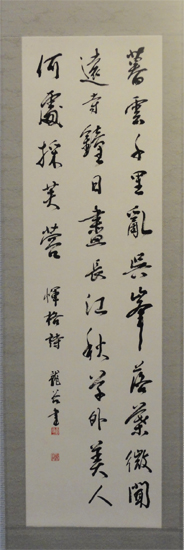 暮雲千里亂吳峯落葉微聞
遠寺鐘目盡長江秋草外美人
何處採芙蓉 惲格詩 龍谷書